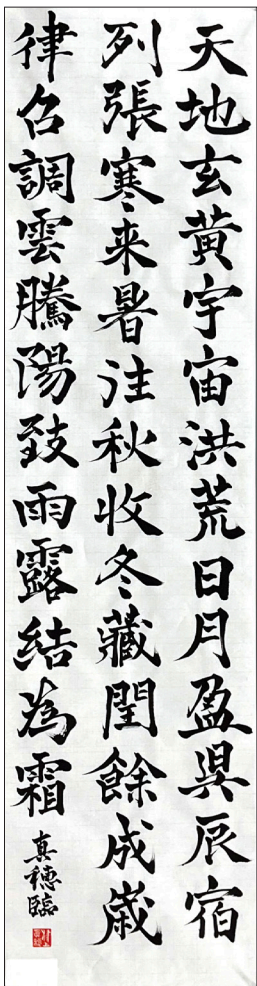 天地玄黄宇宙洪荒日月盈昃辰宿
列張寒来暑往秋收冬藏閏餘成歳
律召調雲騰陽致雨露結為霜
真穂臨